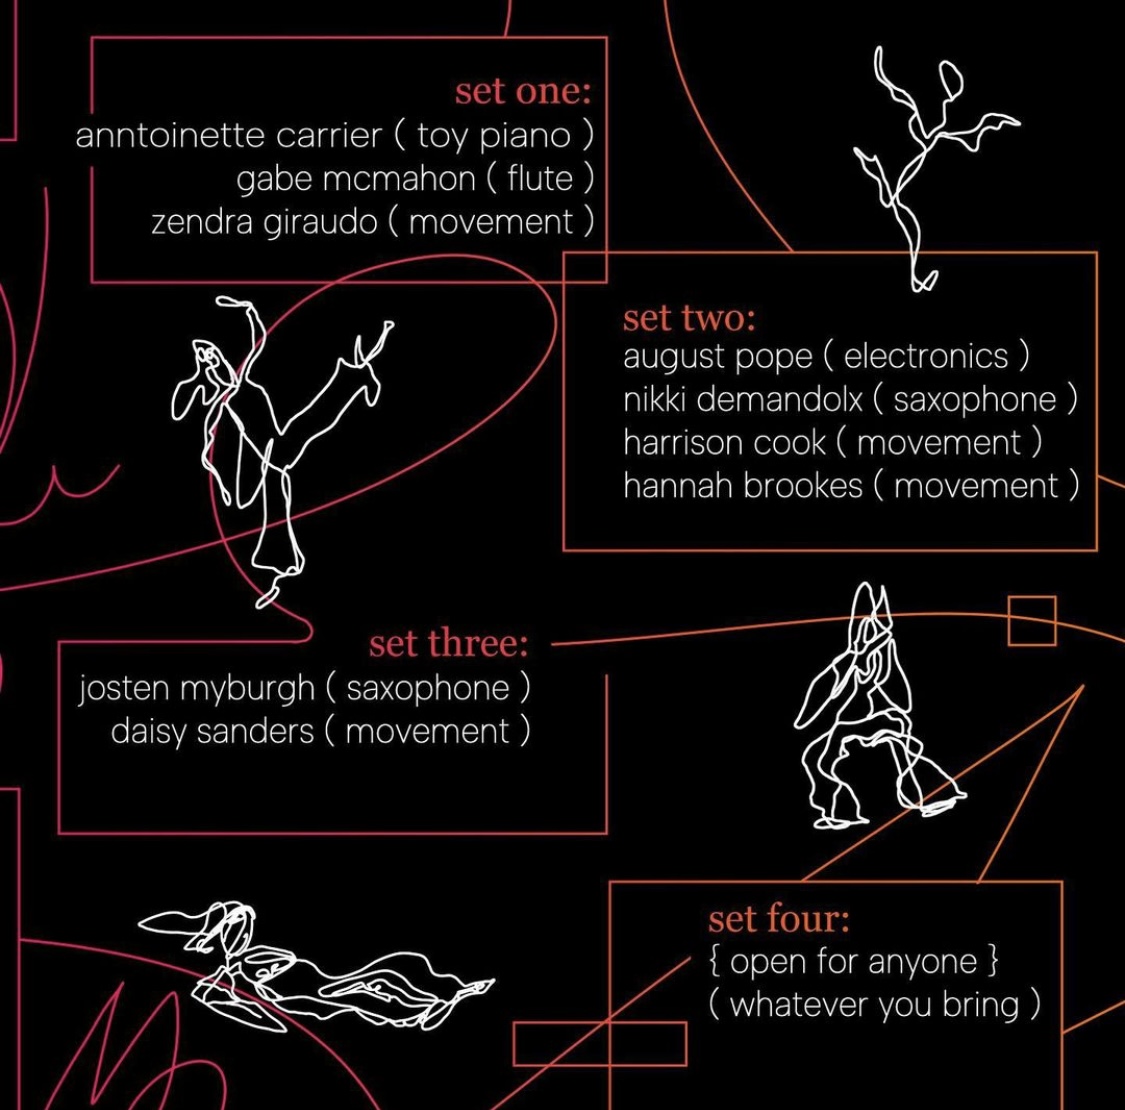 set one:
anntoinette carrier ( toy piano )
gabe mcmahon ( flute )
zendra giraudo ( movement )
set two:
august pope ( electronics )
nikki demandolx ( saxophone )
harrison cook ( movement )
hannah brookes ( movement )
set three:
josten myburgh ( saxophone )
daisy sanders ( movement )
set four:
{ open for anyone }
( whatever you bring )